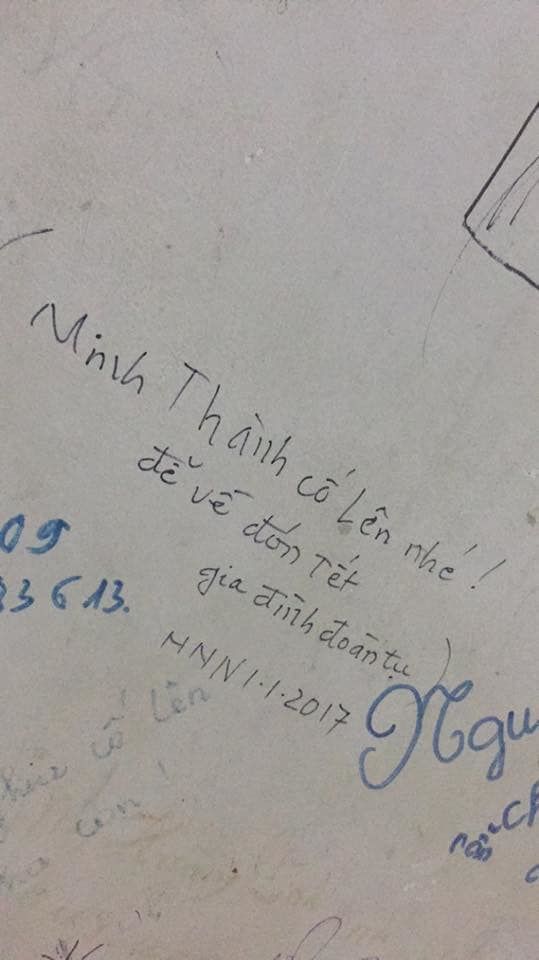 Minh Thành cố lên nhé!
để về đón Tết
gia đình đoàn tụ
HNN 1.1.2017
09
3613.
Ngu
cố lên